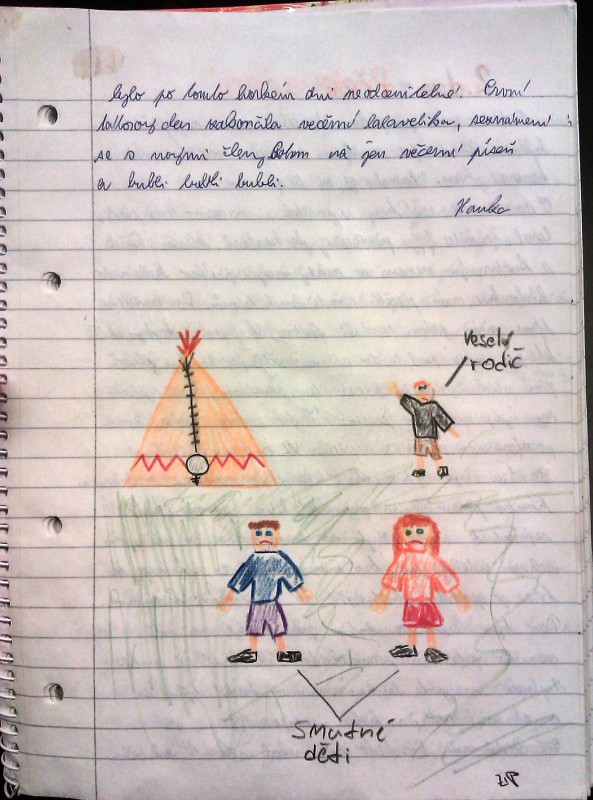 bylo po tomto horkém dni neodcenitelné. První
táborový den zakončila večerní, seznámení
se s novými členy, potom už jen večerní píseň
a bubli bubli bubli.
Hanka
veselý
rodič
smutné
děti